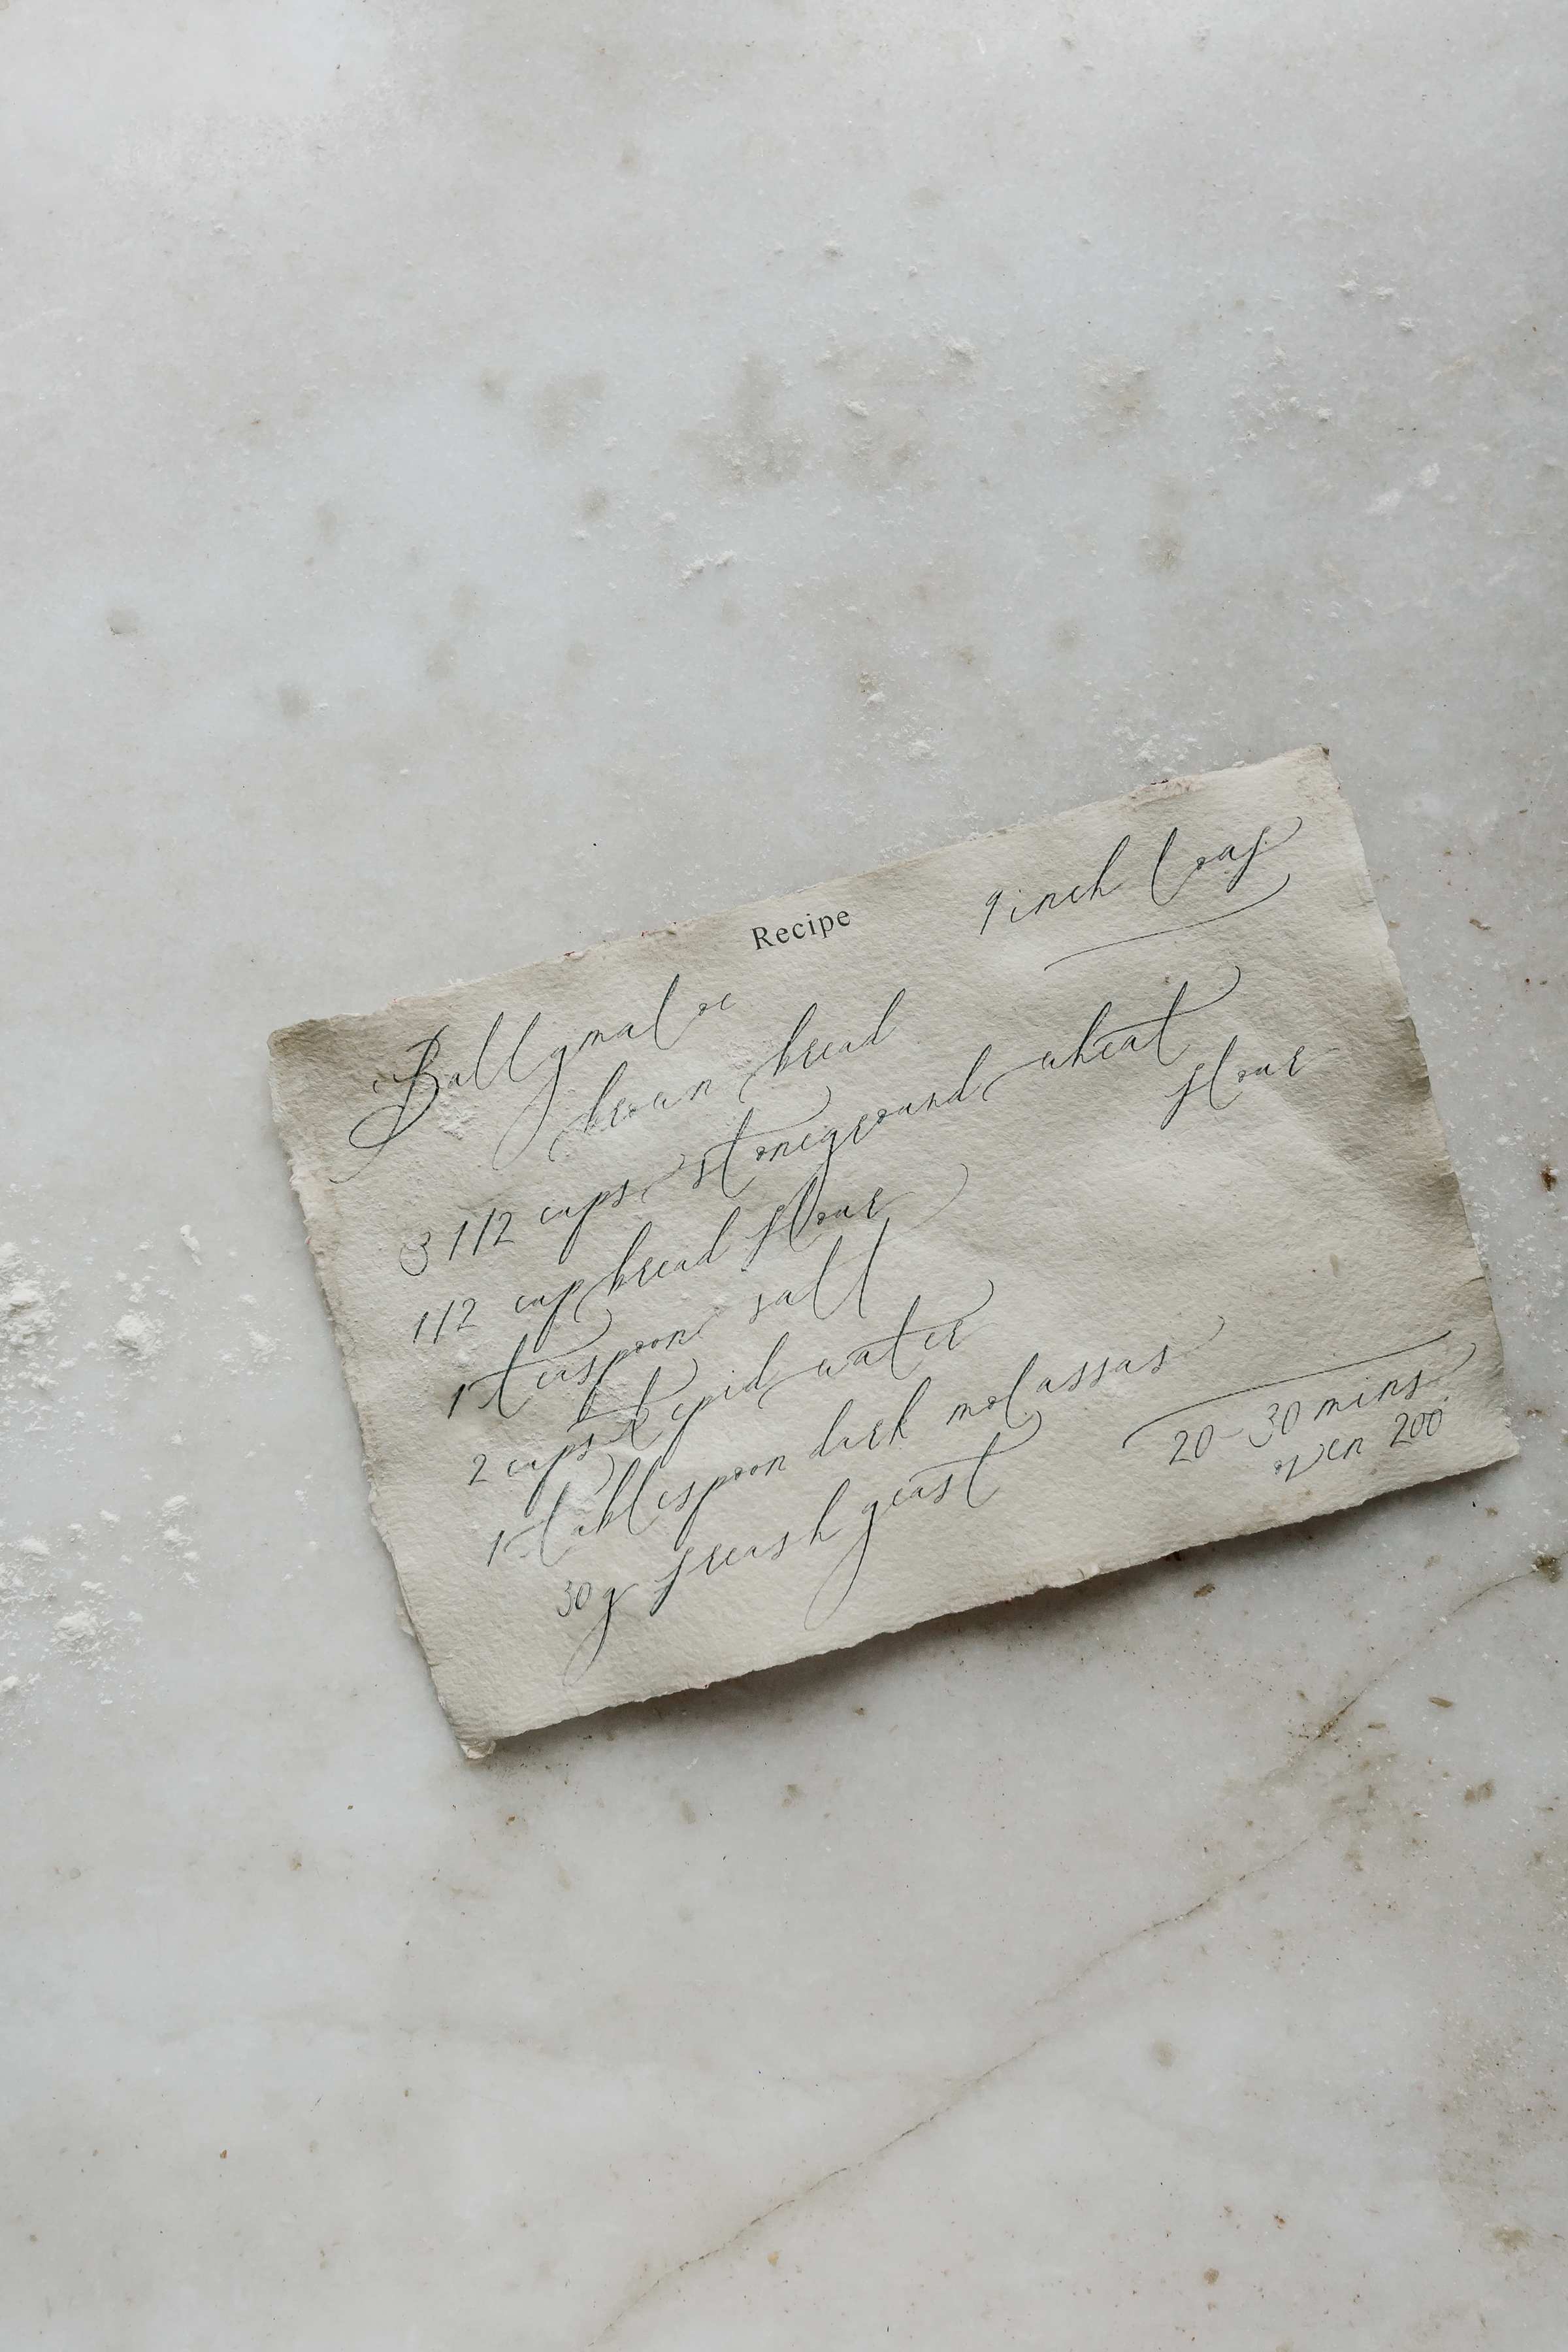 Recipe
9 inch loaf
Ballymaloe
brown bread
3 1/2 cups stoneground wheat
flour
1/2 cup bread flour
1 teaspoon salt
2 cups tepid water
1 tablespoon dark molassas
30g freash yeast
20-30 mins
oven 200